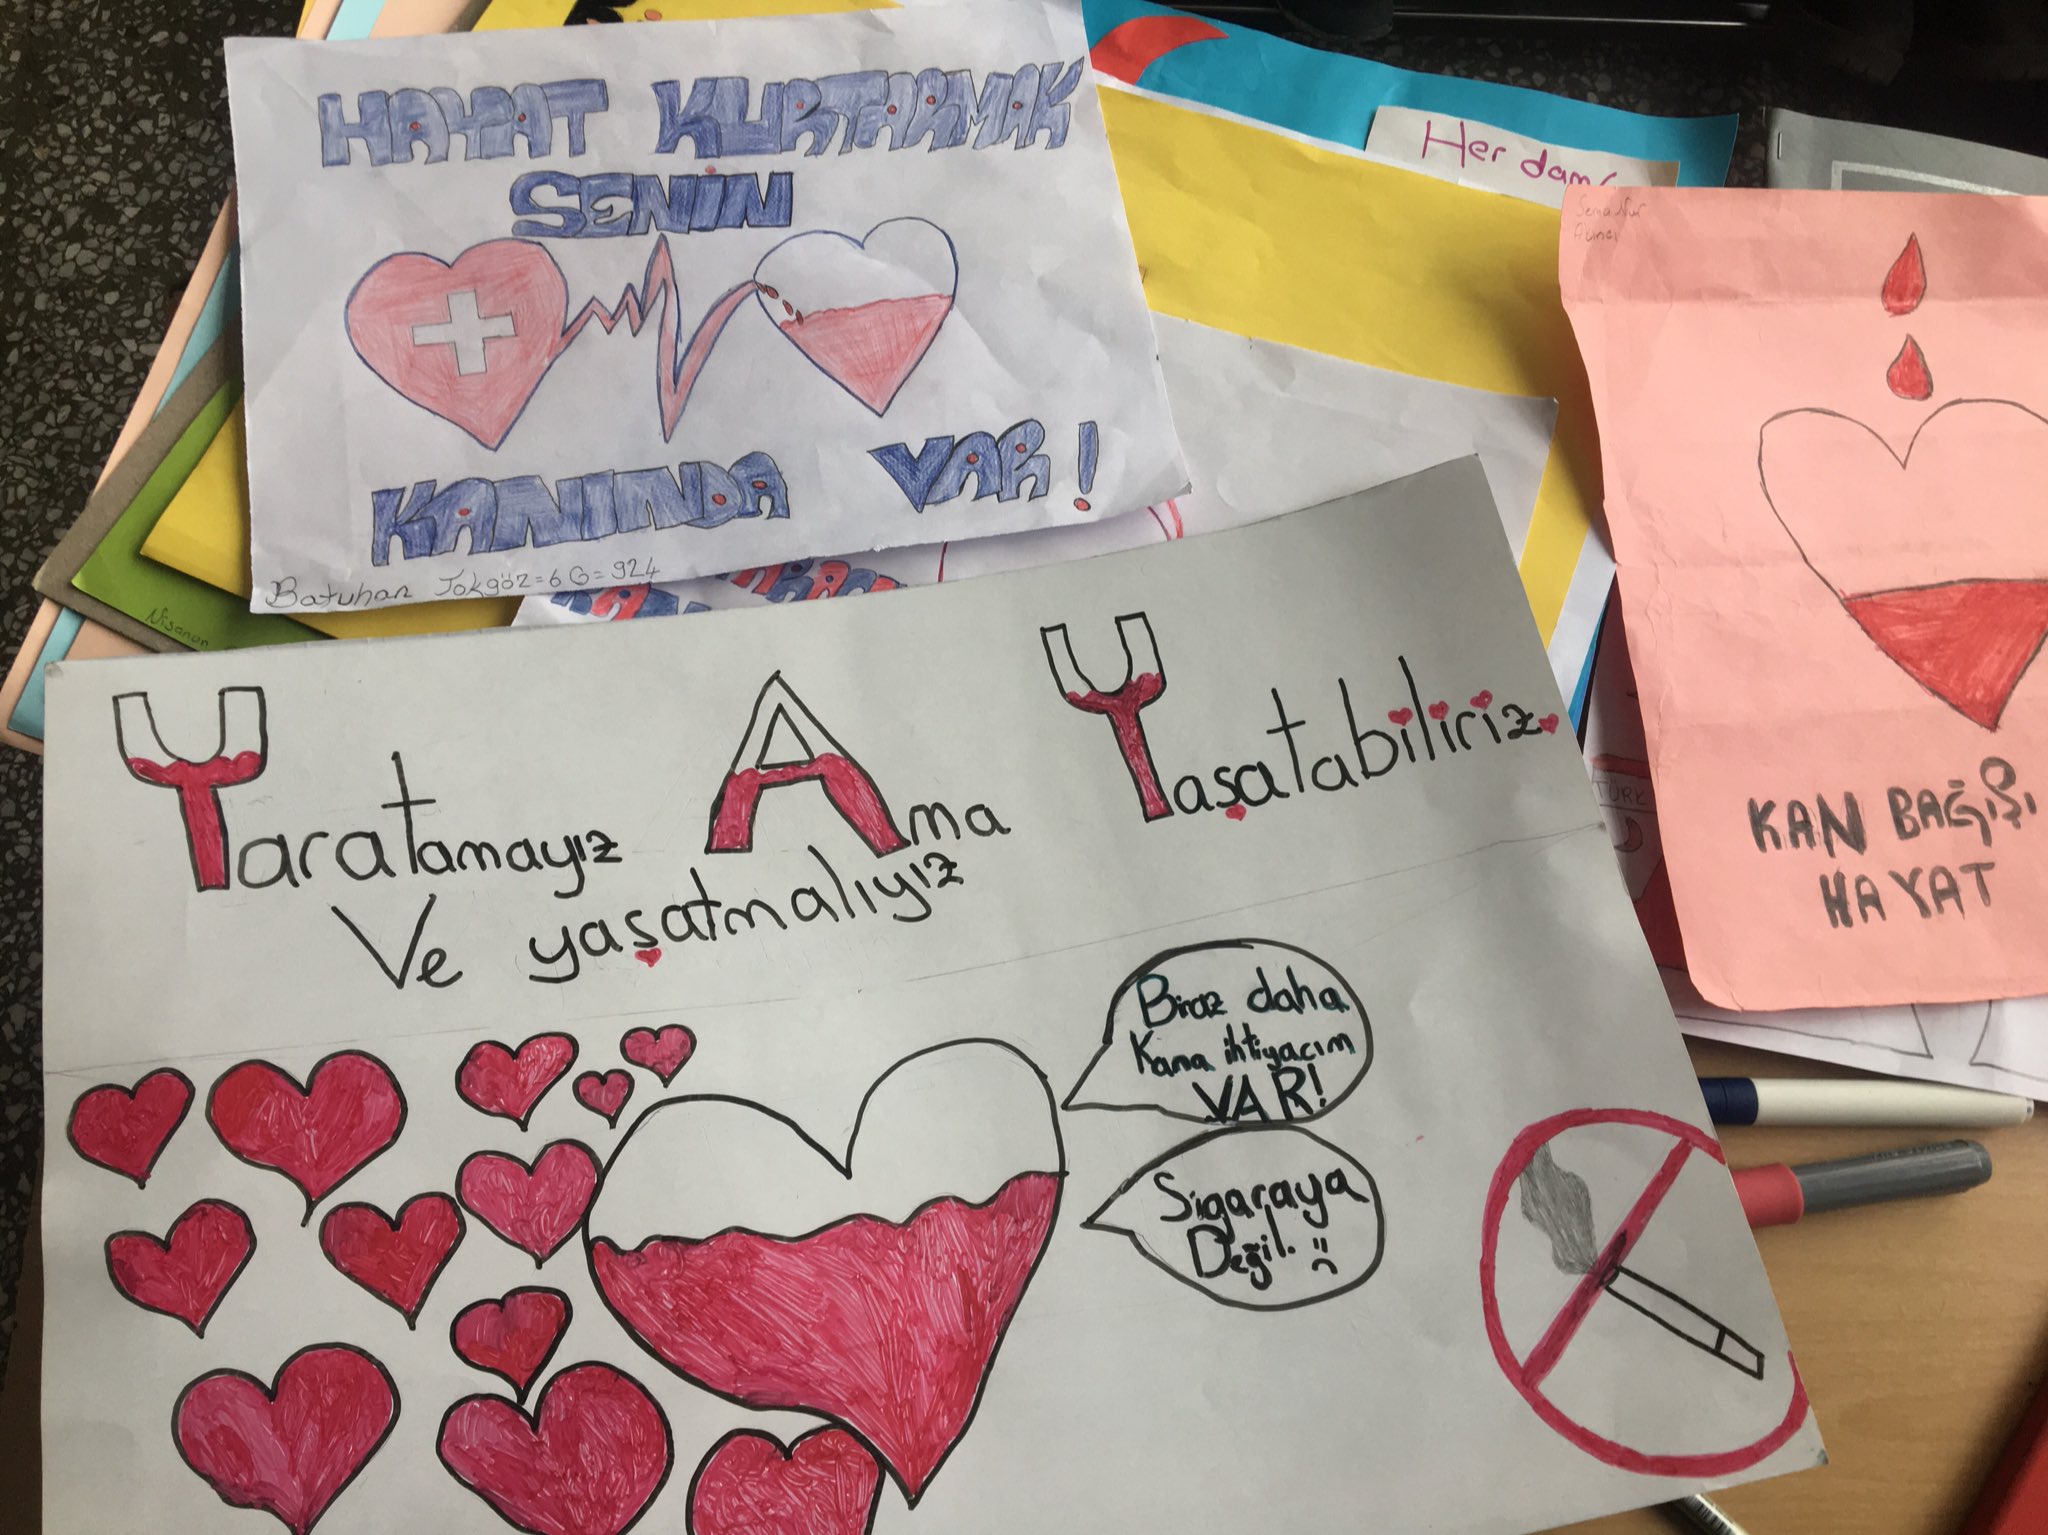 HAYAT KURTARMAK
SENİN
KANINDA VAR!
Batuhan Tokgöz=6G=924
Her dam
Sema Nur
KAN BAĞIŞI
HAYAT
Nisanur
TÜRK
Yaratamayız Ama Yaşatabiliriz.
Ve yaşatmalıyız
Biraz daha
Kana ihtiyacım
VAR!
Sigaraya
Değil.